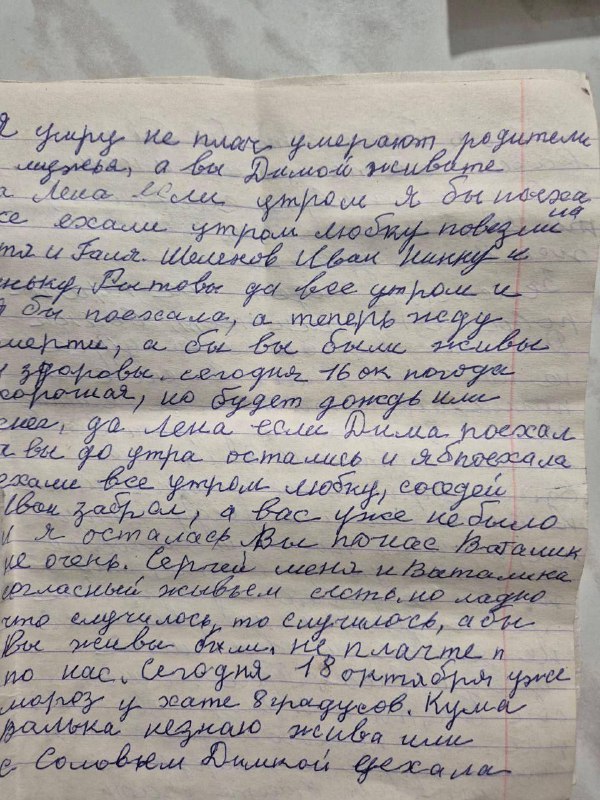 Я умру не плач умерают родители
мужья, а вы Димой живите
а Лена если утром я бы поеха
се ехали утром любку повезли на
тя и Галя. Шеленов Иван Нинку и
нку, Ритовы да все утром и
я бы поехала, а теперь жду
смерти, а бы вы были живы
и здоровы. сегодня 16 ок погода
хорошая, но будет дождь или
снег, да Лена если Дима поехал
а вы до утра остались и я б поехала
ехали все утром любку, соседей
Иван забрал, а вас уже не было
и я осталась Вы по нас Ваталик
не очень. Сергей меня и Ваталика
согласный живьем сесть, но ладно
что случилось, то случилось, абы
Вы живы были, не плачте п
по нас. Сегодня 18 октября уже
мороз у хате 8 градусов. Кума
Валька незнаю жива или
с Соловьем Димкой уехала